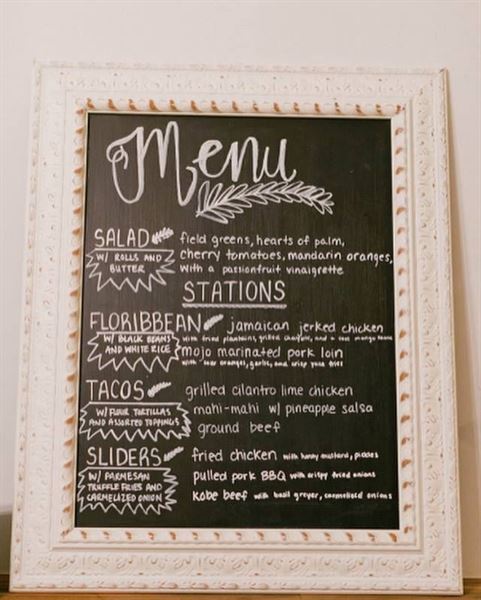 Menu
SALAD
W/ ROLLS AND
BUTTER
field greens, hearts of palm,
cherry tomatoes, mandarin oranges,
with a passionfruit vinaigrette
STATIONS
FLORIBBEAN
W/ BLACK BEANS
AND WHITE RICE
jamaican jerked chicken
with fried plantains, grilled and a mango
mojo marinated pork loin
with sour oranges, garlic, and crisp yuca fries
TACOS
W/ FLOUR TORTILLAS
AND ASSORTED TOPPINGS
grilled cilantro lime chicken
mahi-mahi w/ pineapple salsa
ground beef
SLIDERS
W/ PARMESAN
TRUFFLE FRIES AND
CARMELIZED ONION
fried chicken with honey mustard, pickles
pulled pork BBQ with crispy fried onions
kobe beef with basil gruyer, carmelized onions